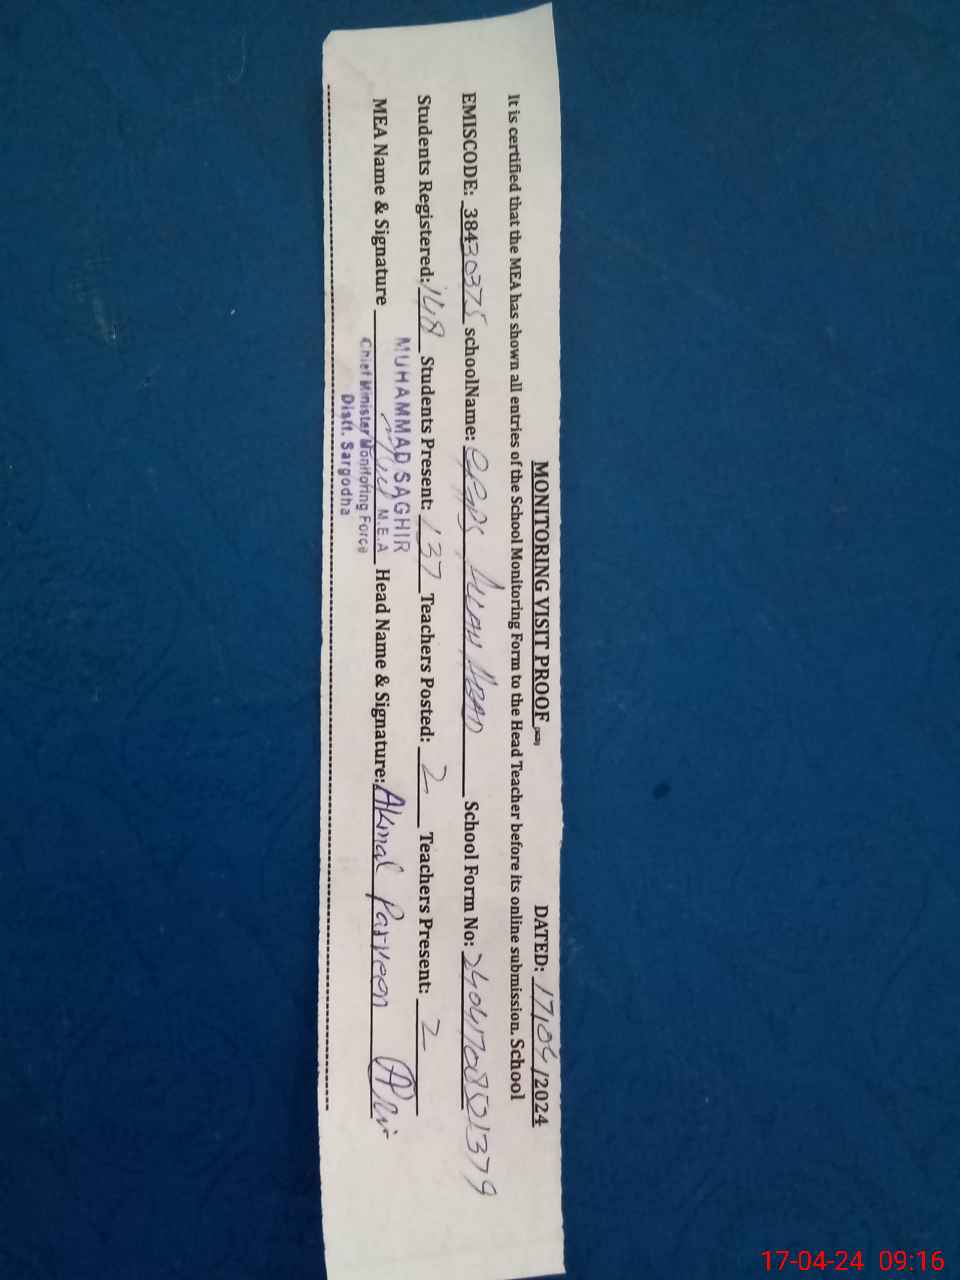 MONITORING VISIT PROOF DATED: 17/04/2024
It is certified that the MEA has shown all entries of the School Monitoring Form to the Head Teacher before its online submission. School
EMISCODE: 38430375 schoolName: School Form No:
Students Registered: 148 Students Present: 137 Teachers Posted: 2 Teachers Present: 2
MEA Name & Signature Head Name & Signature: Akmal Parveen
MUHAMMAD SAGHIR
M.E.A
Chief Minister Monitoring Force
Distt. Sargodha
17-04-24 09:16